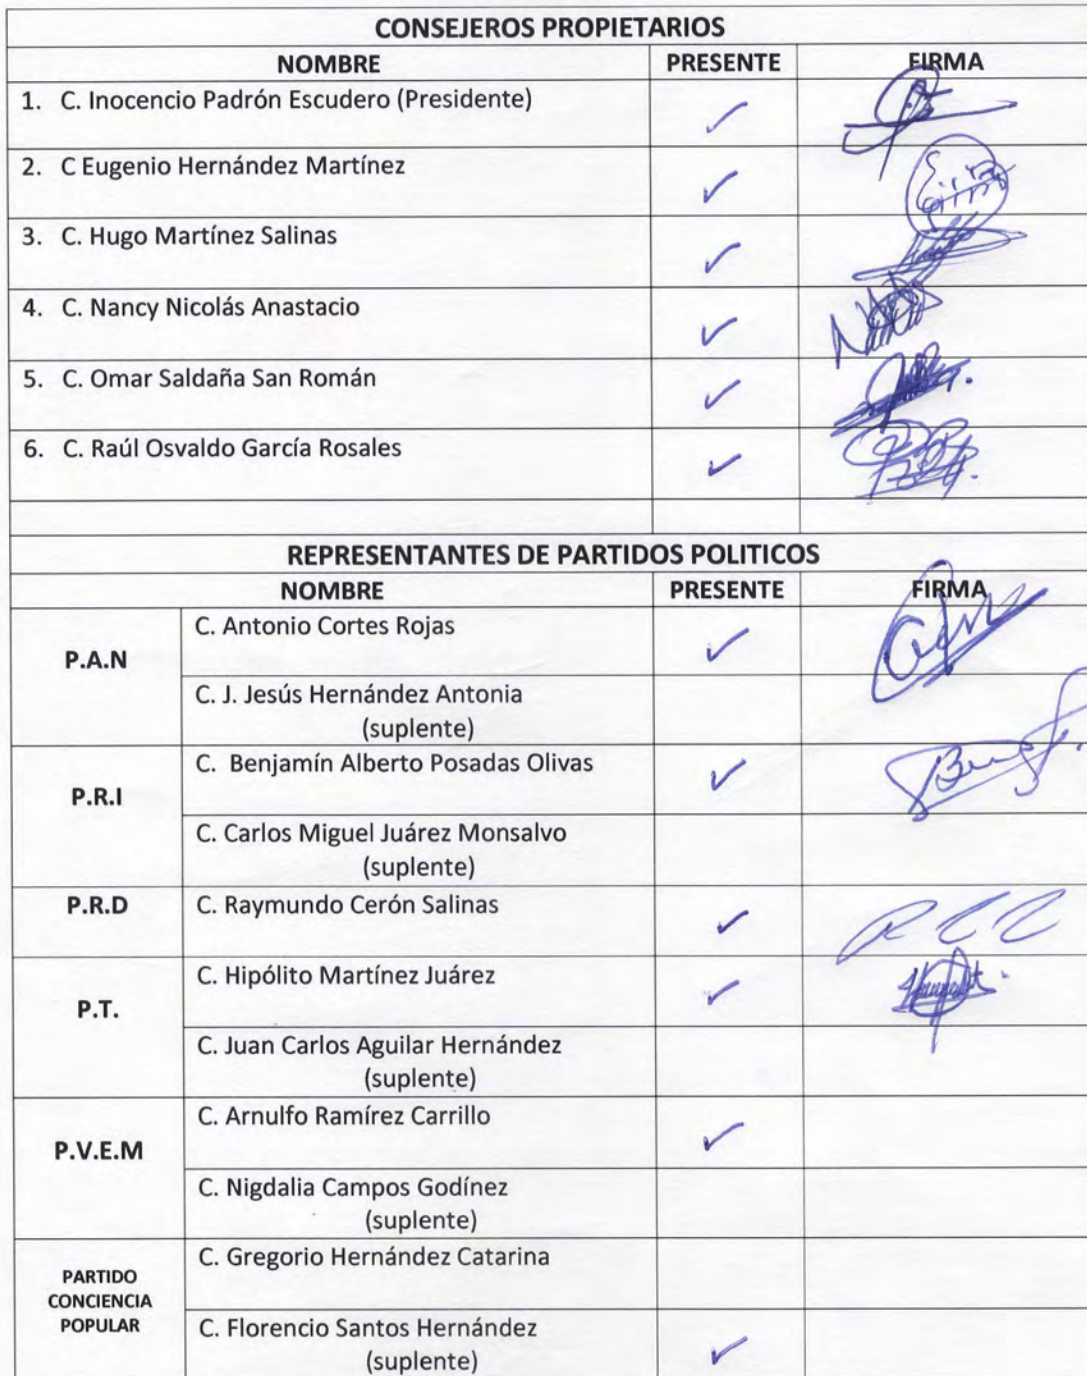 CONSEJEROS PROPIETARIOS
NOMBRE PRESENTE FIRMA
1. C. Inocencio Padrón Escudero (Presidente) ✓
2. C Eugenio Hernández Martínez ✓
3. C. Hugo Martínez Salinas ✓
4. C. Nancy Nicolás Anastacio ✓
5. C. Omar Saldaña San Román ✓
6. C. Raúl Osvaldo García Rosales ✓
REPRESENTANTES DE PARTIDOS POLITICOS
NOMBRE PRESENTE FIRMA
P.A.N
C. Antonio Cortes Rojas ✓
C. J. Jesús Hernández Antonia
(suplente)
P.R.I
C. Benjamín Alberto Posadas Olivas ✓
C. Carlos Miguel Juárez Monsalvo
(suplente)
P.R.D C. Raymundo Cerón Salinas ✓
P.T.
C. Hipólito Martínez Juárez ✓
C. Juan Carlos Aguilar Hernández
(suplente)
P.V.E.M
C. Arnulfo Ramírez Carrillo ✓
C. Nigdalia Campos Godínez
(suplente)
PARTIDO
CONCIENCIA
POPULAR
C. Gregorio Hernández Catarina
C. Florencio Santos Hernández
(suplente) ✓